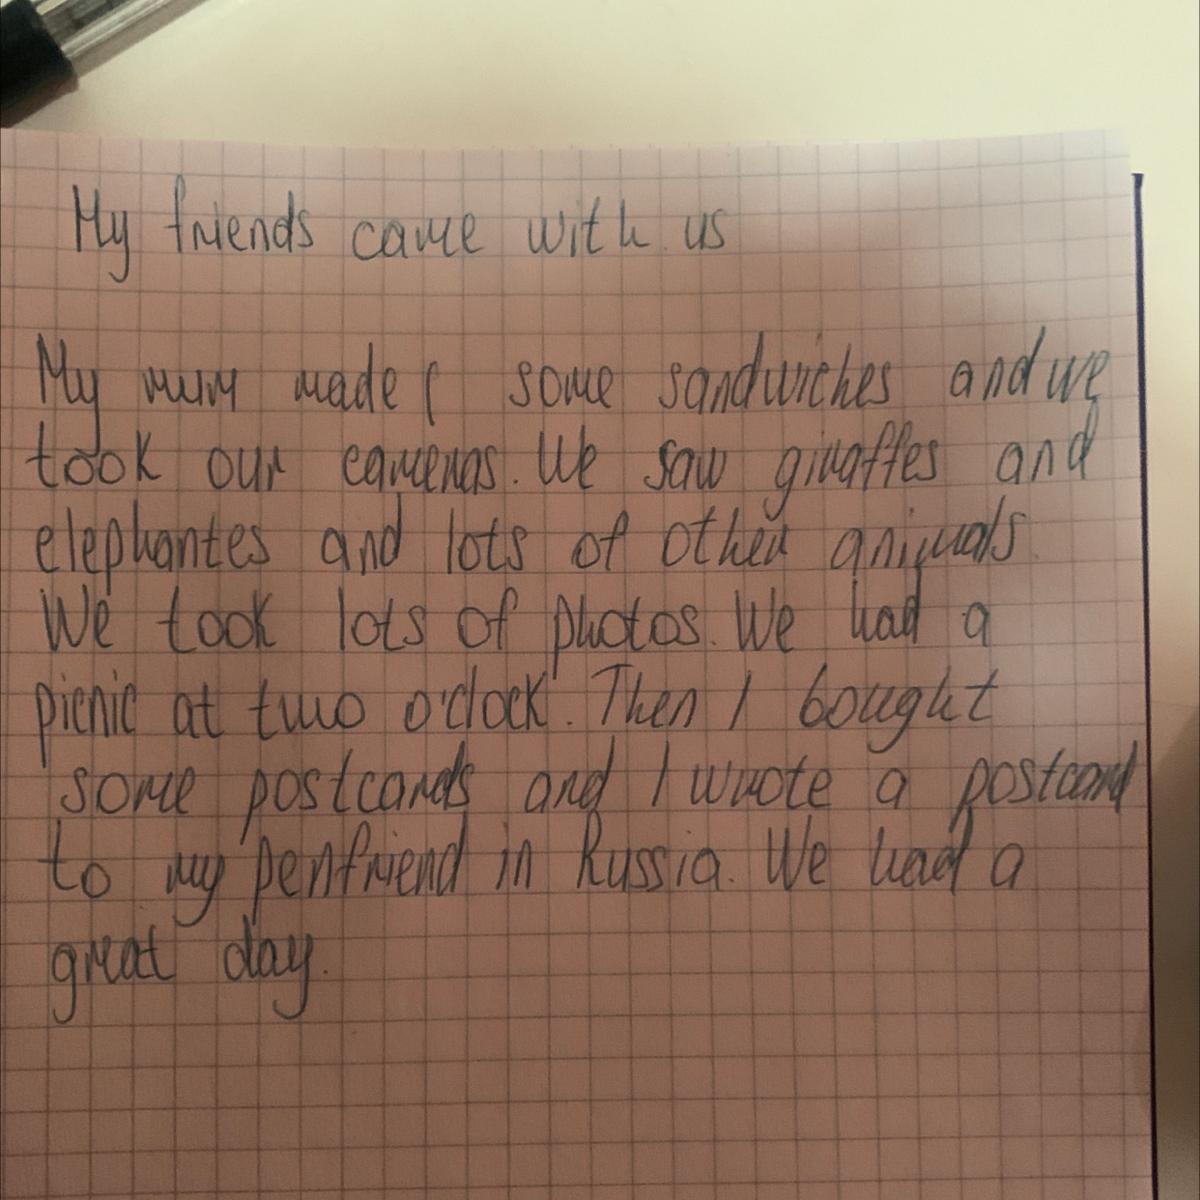 My friends came with us
My mum made ( some sandwiches and we
took our cameras. We saw giraffes and
elephantes and lots of other animals
We took lots of photos. We had a
picnic at two o'clock. Then I bought
some postcards and I wrote a postcard
to my penfriend in Russia. We had a
great day.